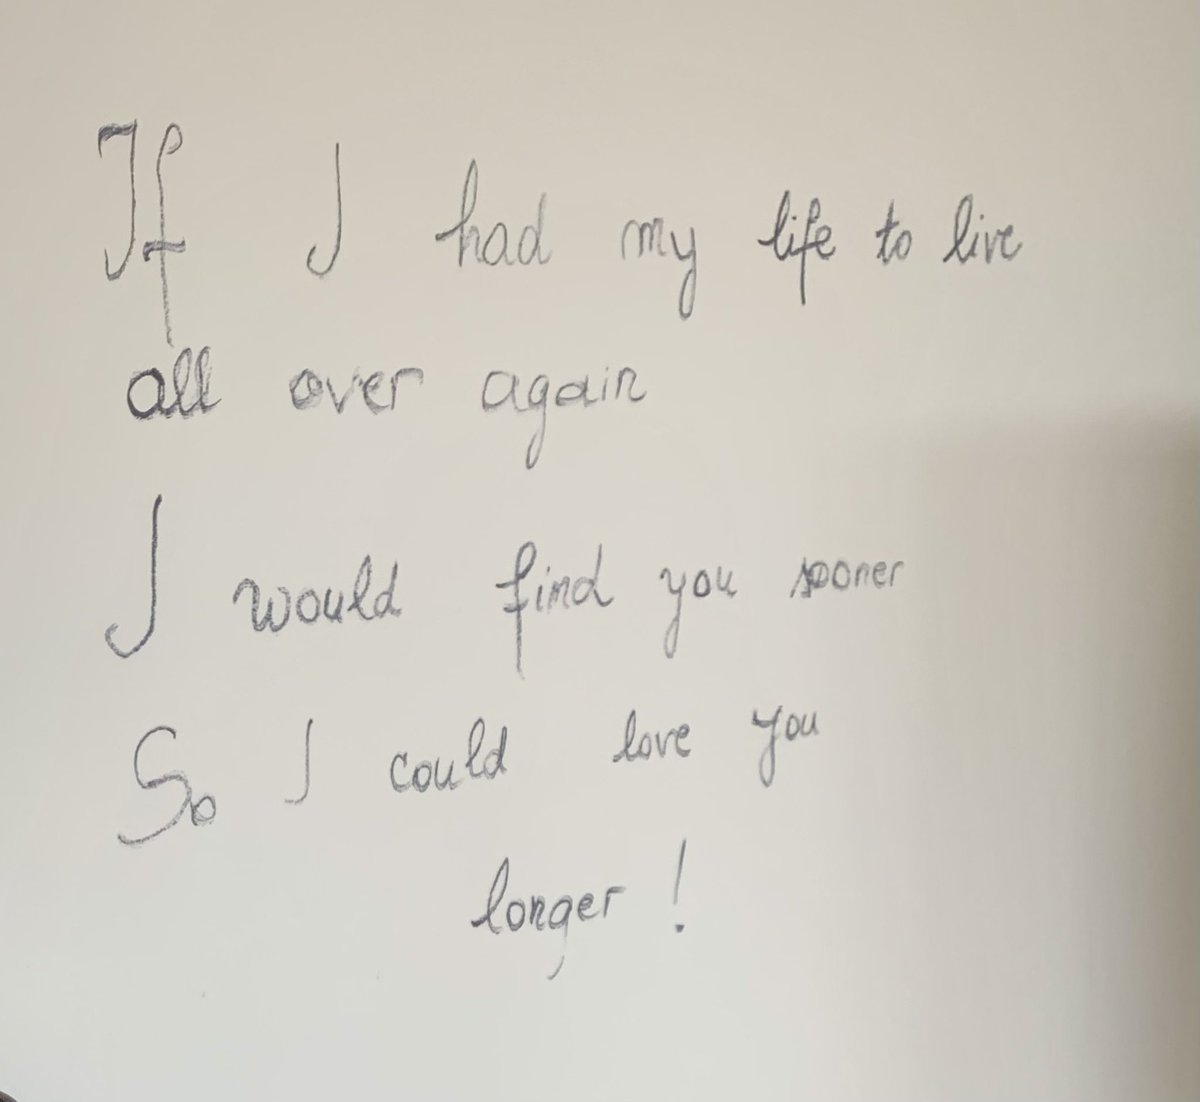 If I had my life to live
all over again
I would find you sooner
So I could love you
longer!